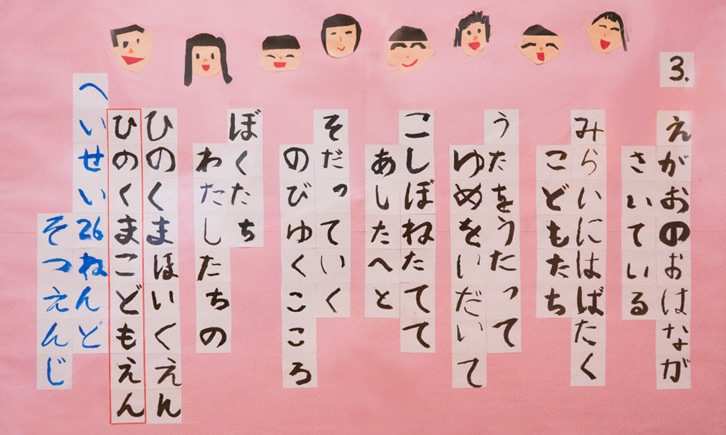 3.
えがおのおはなが
さいている
みらいにはばたく
こどもたち
うたをうたって
ゆめをいだいて
こしぼねたてて
あしたへと
そだっていく
のびゆくこころ
ぼくたち
わたしたちの
ひのくまほいくえん
ひのくまこどもえん
へいせい26ねんど
そつえんじ